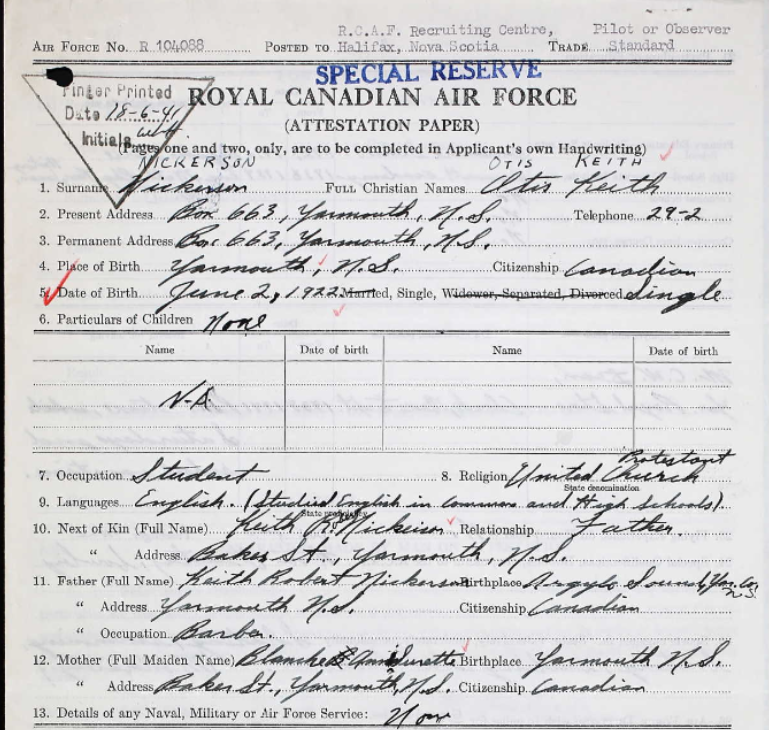 R.C.A.F. Recruiting Centre, Pilot or Observer
AIR FORCE No. R 104088 POSTED TO Halifax, Nova Scotia TRADE Standard
SPECIAL RESERVE
Finger Printed
Date 18-6-41
Initials
ROYAL CANADIAN AIR FORCE
(ATTESTATION PAPER)
(Pages one and two, only, are to be completed in Applicant's own Handwriting)
NICKERSON OTIS KEITH
1. Surname Nickerson FULL Christian Names Otis Keith
2. Present Address Box 663, Yarmouth, N.S. Telephone 29-2
3. Permanent Address Box 663, Yarmouth, N.S.
4. Place of Birth Yarmouth, N.S. Citizenship Canadian
5. Date of Birth June 2, 1922 Married, Single, Widower, Separated, Divorced Single
6. Particulars of Children None
Name Date of birth Name Date of birth
N.A.
Protestant
7. Occupation Student 8. Religion United Church
State denomination
9. Languages English. (Studied English in common and High Schools).
State proficiency
10. Next of Kin (Full Name) Keith R. Nickerson Relationship Father.
" Address Baker St., Yarmouth, N.S.
11. Father (Full Name) Keith Robert Nickerson Birthplace Argyle Sound, Yar. Co. N.S.
" Address Yarmouth N.S. Citizenship Canadian
" Occupation Barber.
12. Mother (Full Maiden Name) Blanche Surette Birthplace Yarmouth N.S.
" Address Baker St., Yarmouth, N.S. Citizenship Canadian
13. Details of any Naval, Military or Air Force Service: None